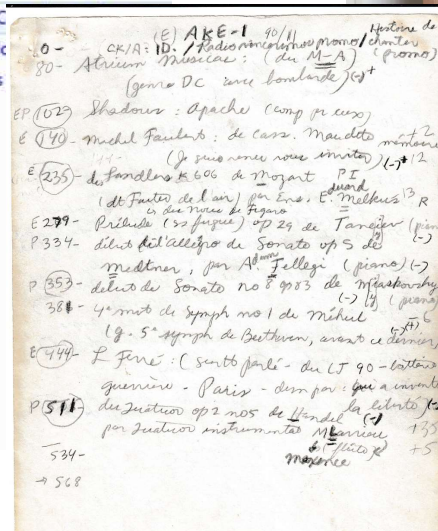 (E) AKE-1 90/11 Histoire de
0- CK/A: ID. / Radio promo/ chanter
80- Atrium Musicae: (du M-A) (promo)
(genre DC avec bombarde) (-)+
EP 102? Shadows: Apache (comp pr eux) +2
E 140- Michel Faubert: de cass. Maudite mémoire
(Je suis venu vous inviter) (-)+ 12
E 235- des Landlers K 606 de Mozart PI
(dt Fartes de l'air) par Ens. Eduard Melkus 13 R
en des Noces de Figaro
E 279- Prélude (ss fugue) op 29 de Taneiev (pian
P 334- début de l'Allegro de Sonate op 5 de (-)
Medtner, par Adam Fellegi (piano) (-)
P 353- début de Sonate no 8 op 83 de Miaskovsky
(-) (piano)
381- 4e mvt de Symph no 1 de Méhul -6
(g. 5e symph de Beethoven, avant ce dernier) (-)(+)
E 444- L. Ferré: (surtt parlé- du CJ 90- 
guerriero - Paris - dem par: qui a inventé
P 511- du Quatuor op 2 no 5 de Handel la liberté) (-)
par Quatuor instrumental M Larrieu (-) +35
534- (flûte) +5
Maxence
→ 568